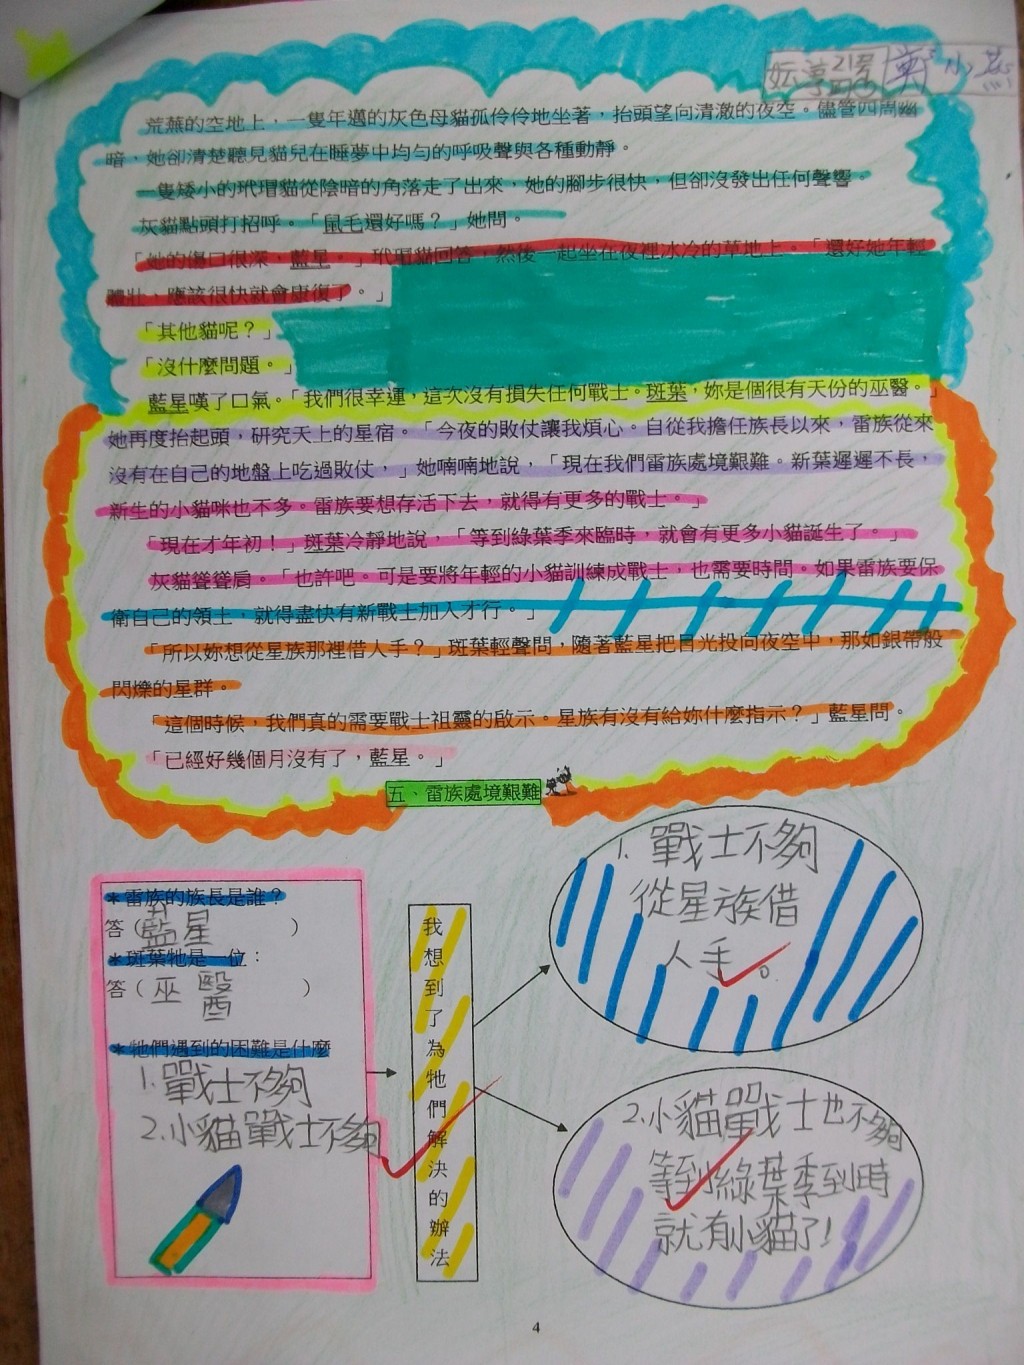 荒蕪的空地上，一隻年邁的灰色母貓孤伶伶地坐著，抬頭望向清澈的夜空。儘管四周幽
暗，她卻清楚聽見貓兒在睡夢中均勻的呼吸聲與各種動靜。
一隻矮小的玳瑁貓從陰暗的角落走了出來，她的腳步很快，但卻沒發出任何聲響。
灰貓點頭打招呼。「鼠毛還好嗎？」她問。
「她的傷口很深，藍星。」玳瑁貓回答，然後一起坐在夜裡冰冷的草地上。「還好她年輕
體壯，應該很快就會康復了。」
「其他貓呢？」
「沒什麼問題。」
藍星嘆了口氣。「我們很幸運，這次沒有損失任何戰士。斑葉，妳是個很有天份的巫醫。」
她再度抬起頭，研究天上的星宿。「今夜的敗仗讓我煩心。自從我擔任族長以來，雷族從來
沒有在自己的地盤上吃過敗仗，」她喃喃地說，「現在我們雷族處境艱難。新葉遲遲不長，
新生的小貓咪也不多。雷族要想存活下去，就得有更多的戰士。」
「現在才年初！」斑葉冷靜地說，「等到綠葉季來臨時，就會有更多小貓誕生了。」
灰貓聳聳肩。「也許吧。可是要將年輕的小貓訓練成戰士，也需要時間。如果雷族要保
衛自己的領土，就得盡快有新戰士加入才行。」
「所以妳想從星族那裡借人手？」斑葉輕聲問，隨著藍星把目光投向夜空中，那如銀帶般
閃爍的星群。
「這個時候，我們真的需要戰士祖靈的啟示。星族有沒有給妳什麼指示？」藍星問。
「已經好幾個月沒有了，藍星。」
五、雷族處境艱難
＊雷族的族長是誰？
答（藍星）
＊斑葉牠是一位：
答（巫醫）
＊牠們遇到的困難是什麼
1.戰士不夠
2.小貓戰士不夠
我想到了為牠們解決的辦法
1.戰士不夠
從星族借
人手。
2.小貓戰士也不夠
等到綠葉季到時
就有小貓了!
4